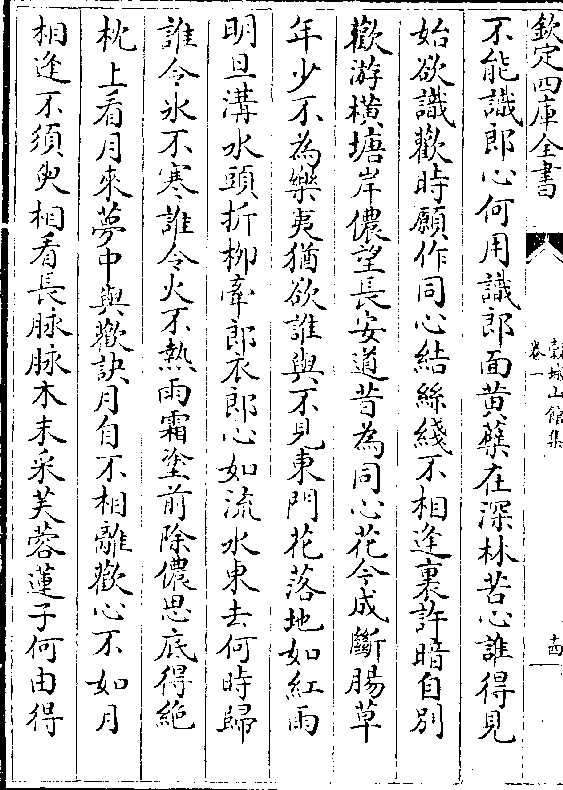 欽定四庫全書
穀城山館集
卷一
十四
不能識郎心何用識郎面黄蘗在深林苦心誰得見
始欲識歡時願作同心結絲綫不相逢裏許暗自别
歡游橫塘岸儂望長安道昔為同心花今成斷腸草
年少不為樂夷猶欲誰與不見東門花落地如紅雨
明旦溝水頭折栁牽郎衣郎心如流水東去何時歸
誰令氷不寒誰令火不熱雨霜塗前除儂思底得絶
枕上看月來夢中與歡訣月自不相離歡心不如月
相逢不須臾相看長脉脉木末采芙蓉蓮子何由得